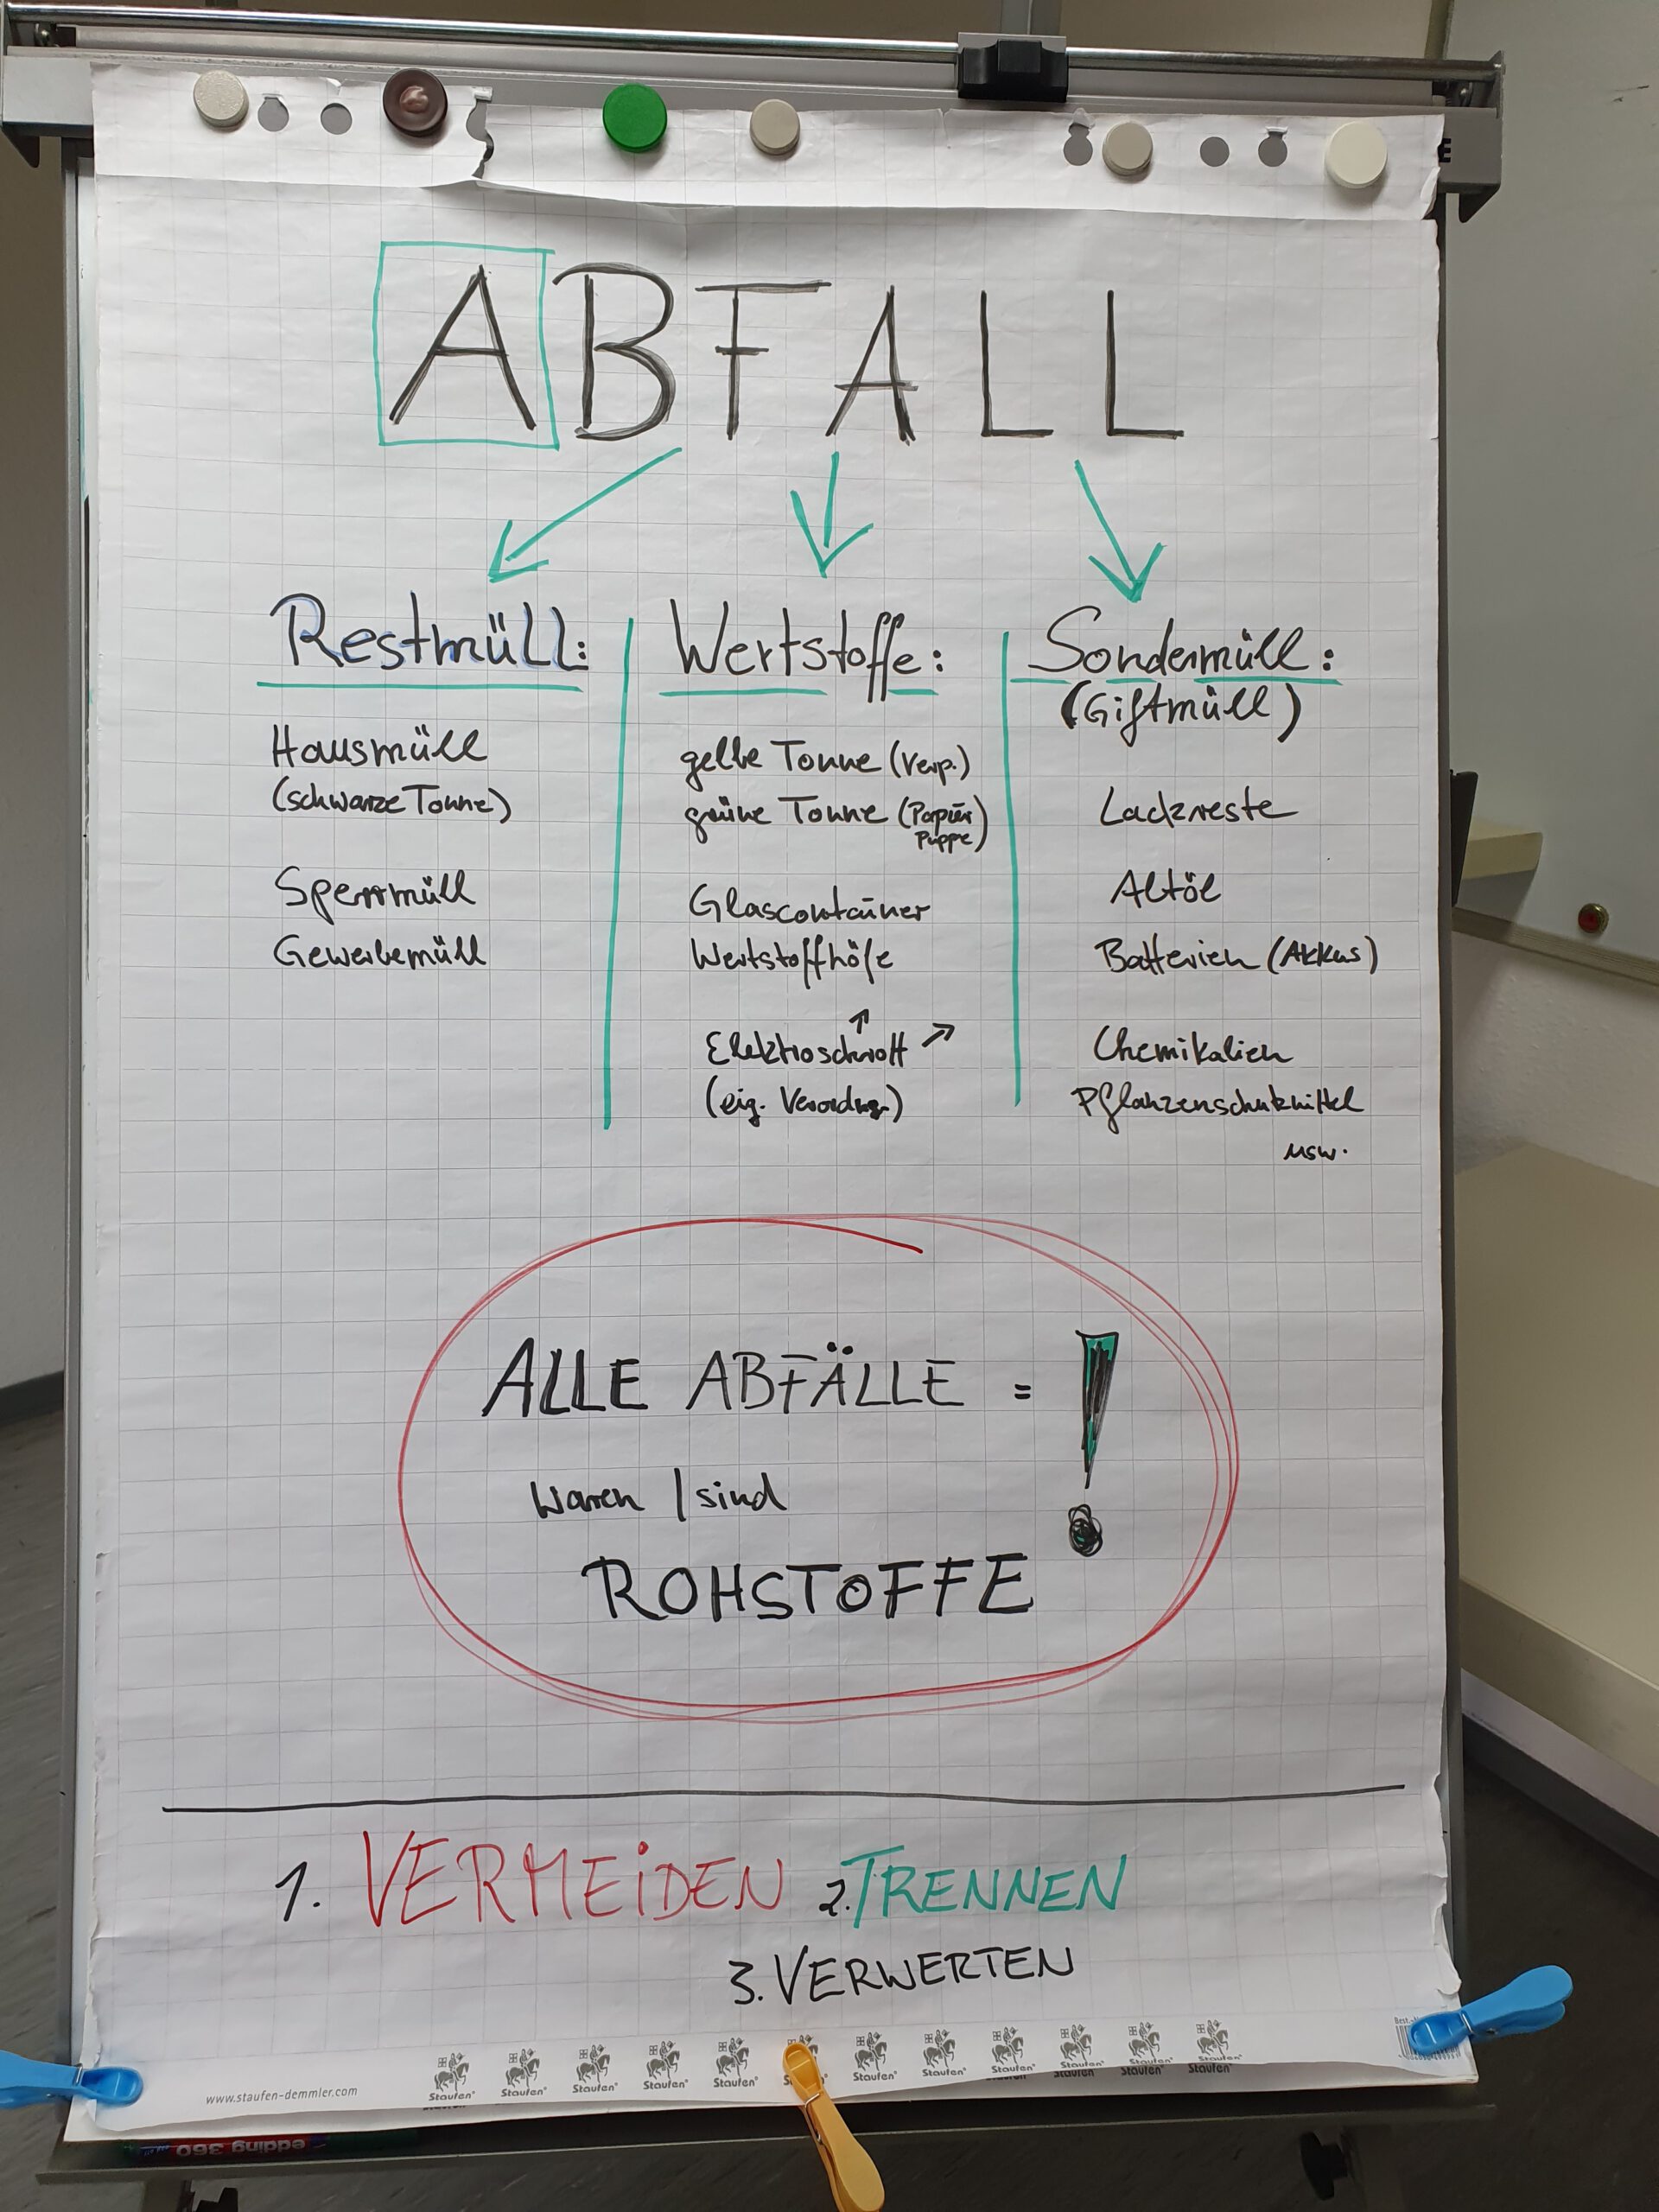 ABFALL
Restmüll:
Hausmüll
(schwarze Tonne)
Sperrmüll
Gewerbemüll
Wertstoffe:
gelbe Tonne (Verp.)
grüne Tonne (Papier
Puppe)
Glascontainer
Wertstoffhöfe
Elektroschrott
(eig. Verordng.)
Sondermüll:
(Giftmüll)
Lackreste
Altöl
Batterien (Akkus)
Chemikalien
Pflanzenschutzmittel
usw.
ALLE ABFÄLLE = !
waren / sind
ROHSTOFFE
1. VERMEiDEN 2. TRENNEN
3. VERWERTEN
www.staufen-demmler.com
Staufen Staufen Staufen Staufen Staufen Staufen Staufen Staufen Staufen Staufen Staufen
edding 360